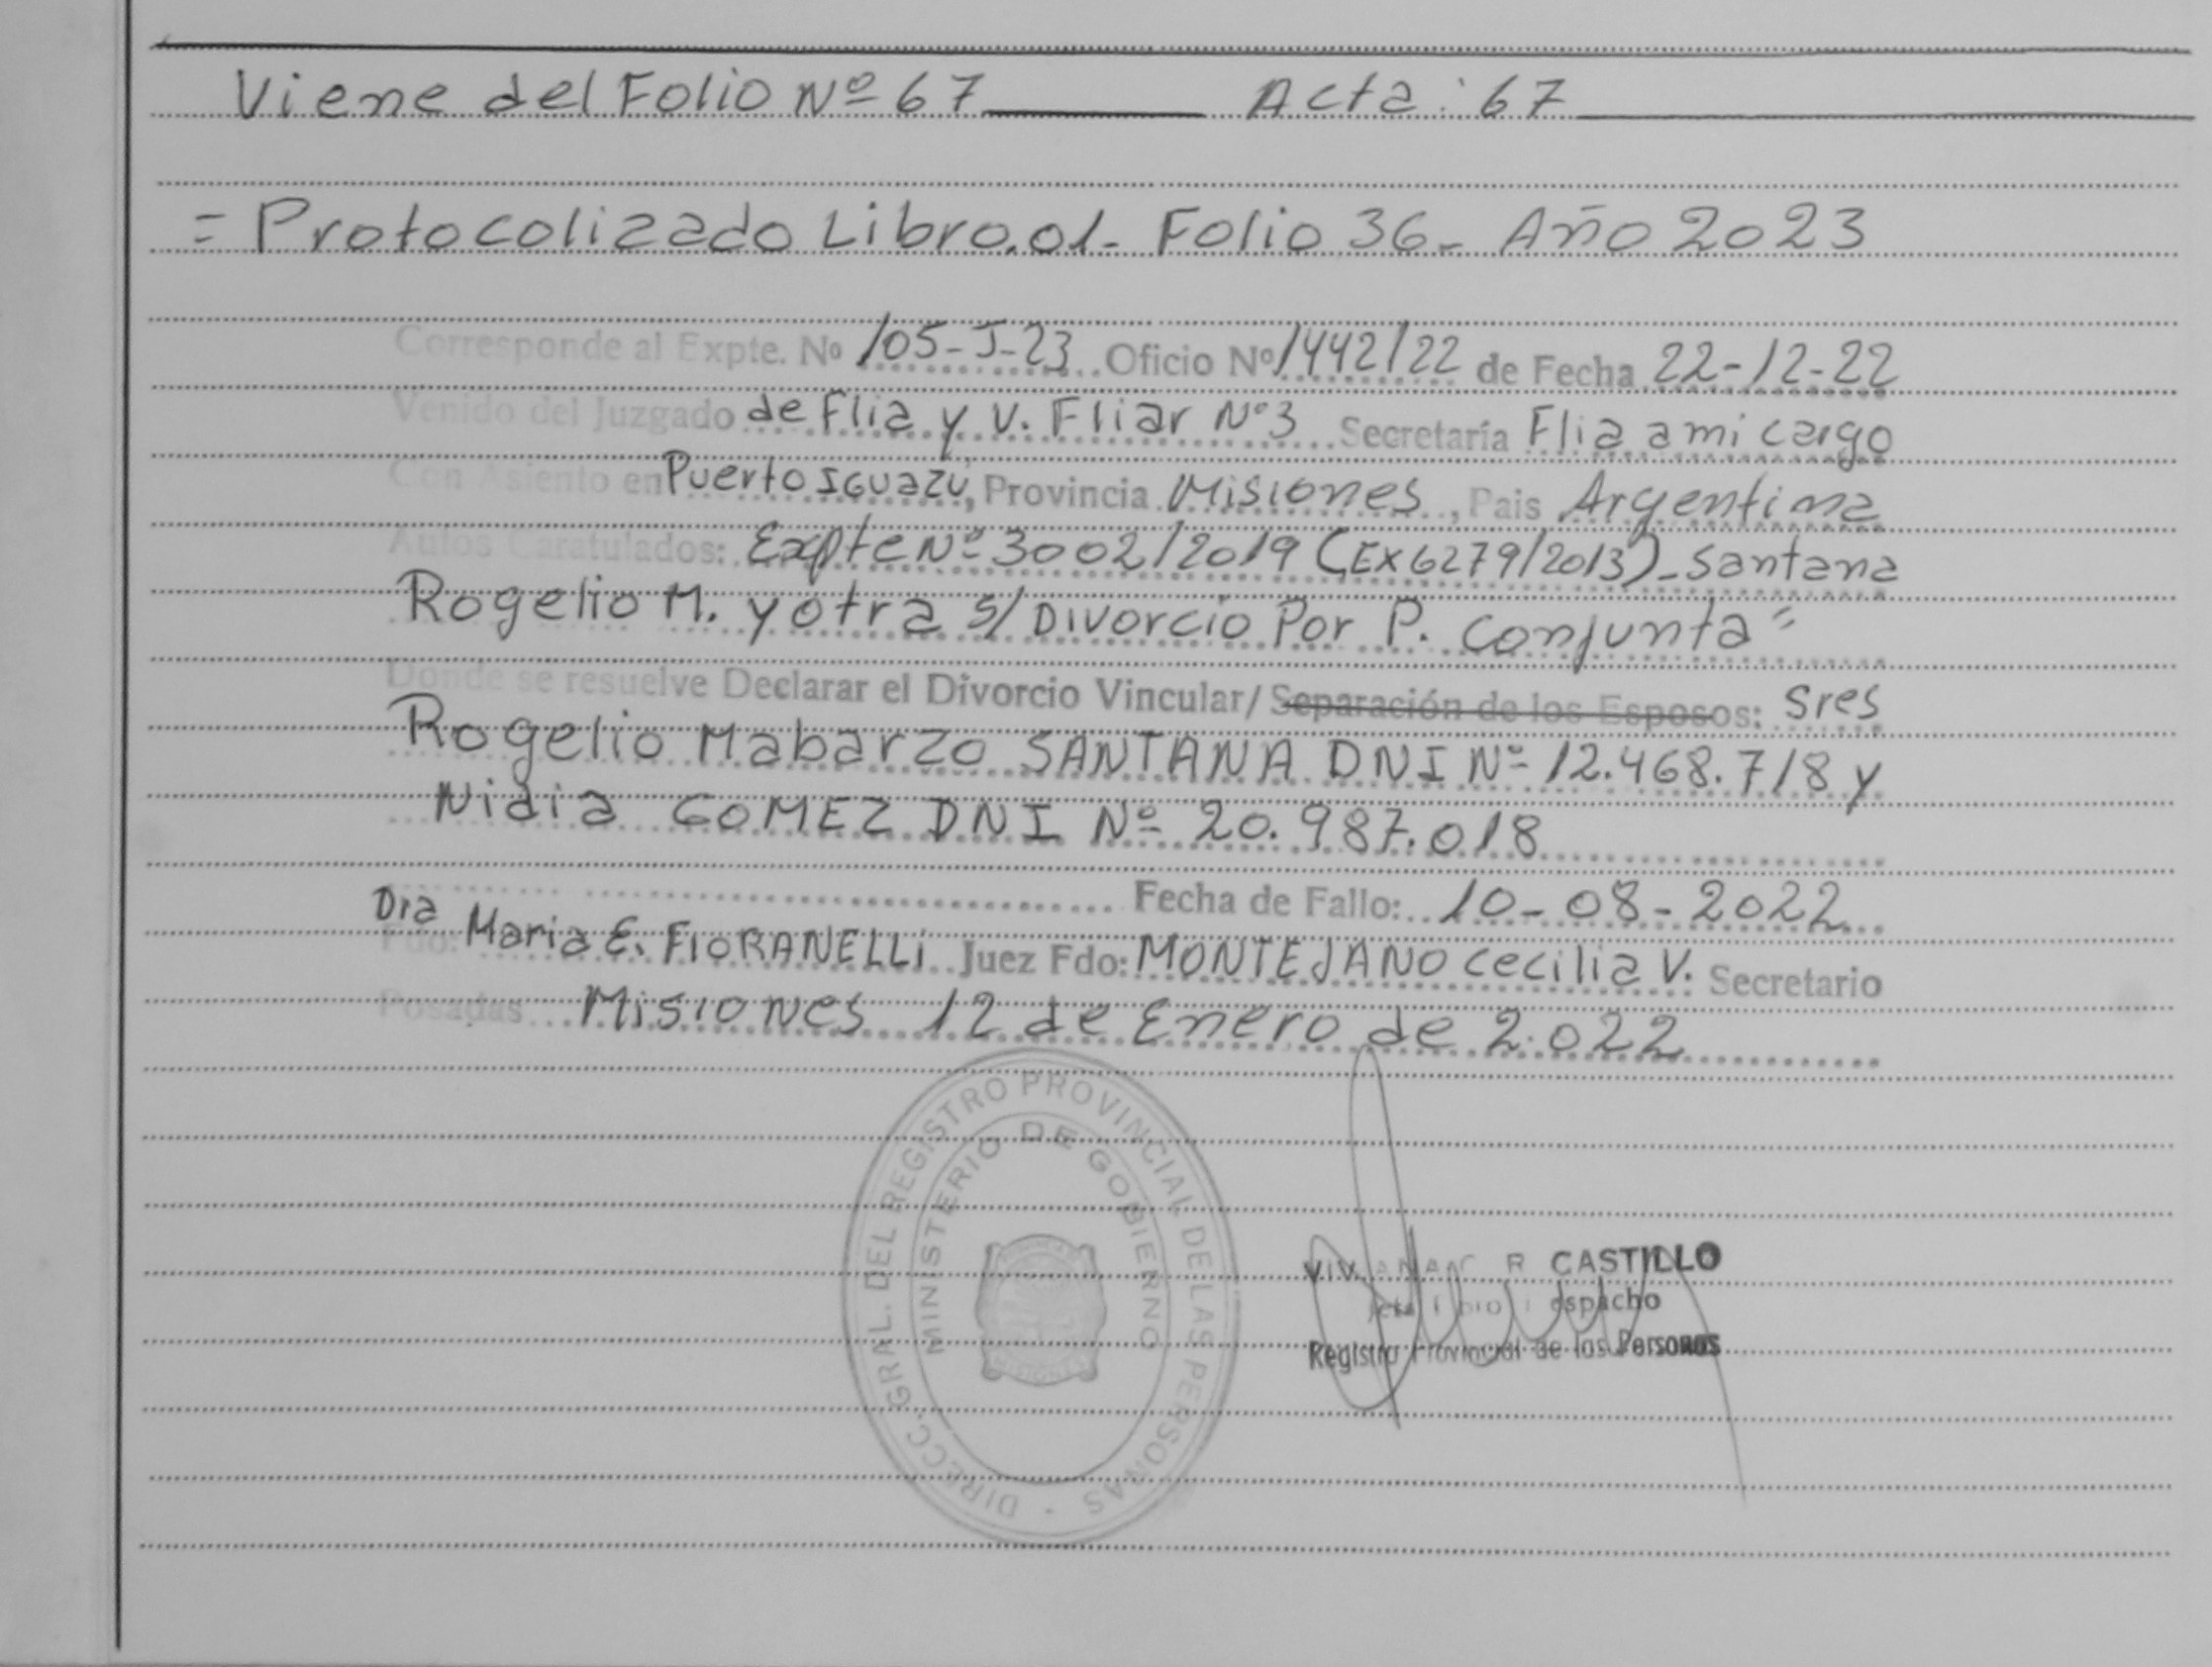 Viene del Folio Nº 67 Acta: 67
= Protocolizado Libro.01- Folio 36- Año 2023
Corresponde al Expte. Nº 105-J-23 Oficio Nº 1442/22 de Fecha 22-12-22
Venido del Juzgado de Flia y V. Fliar Nº3 Secretaría Flia a mi cargo
Con Asiento en Puerto Iguazú, Provincia Misiones, Pais Argentina
Autos Caratulados: Expte Nº 3002/2019 (EX 6279/2013)-Santana
Rogelio M. y otra s/ Divorcio Por P. Conjunta"
Donde se resuelve Declarar el Divorcio Vincular/ Separación de los Esposos: Sres
Rogelio Mabarzo SANTANA DNI Nº 12.468.718 y
Nidia GOMEZ DNI Nº 20.987.018
Fecha de Fallo: 10-08-2022
Fdo: Dra Maria E. FIORANELLI Juez Fdo: MONTEJANO Cecilia V. Secretario
Posadas Misiones 12 de Enero de 2.022
DIRECC. GRAL. DEL REGISTRO PROVINCIAL DE LAS PERSONAS
MINISTERIO DE GOBIERNO
R CASTILLO
Despacho
Registro Provincial de las Personas